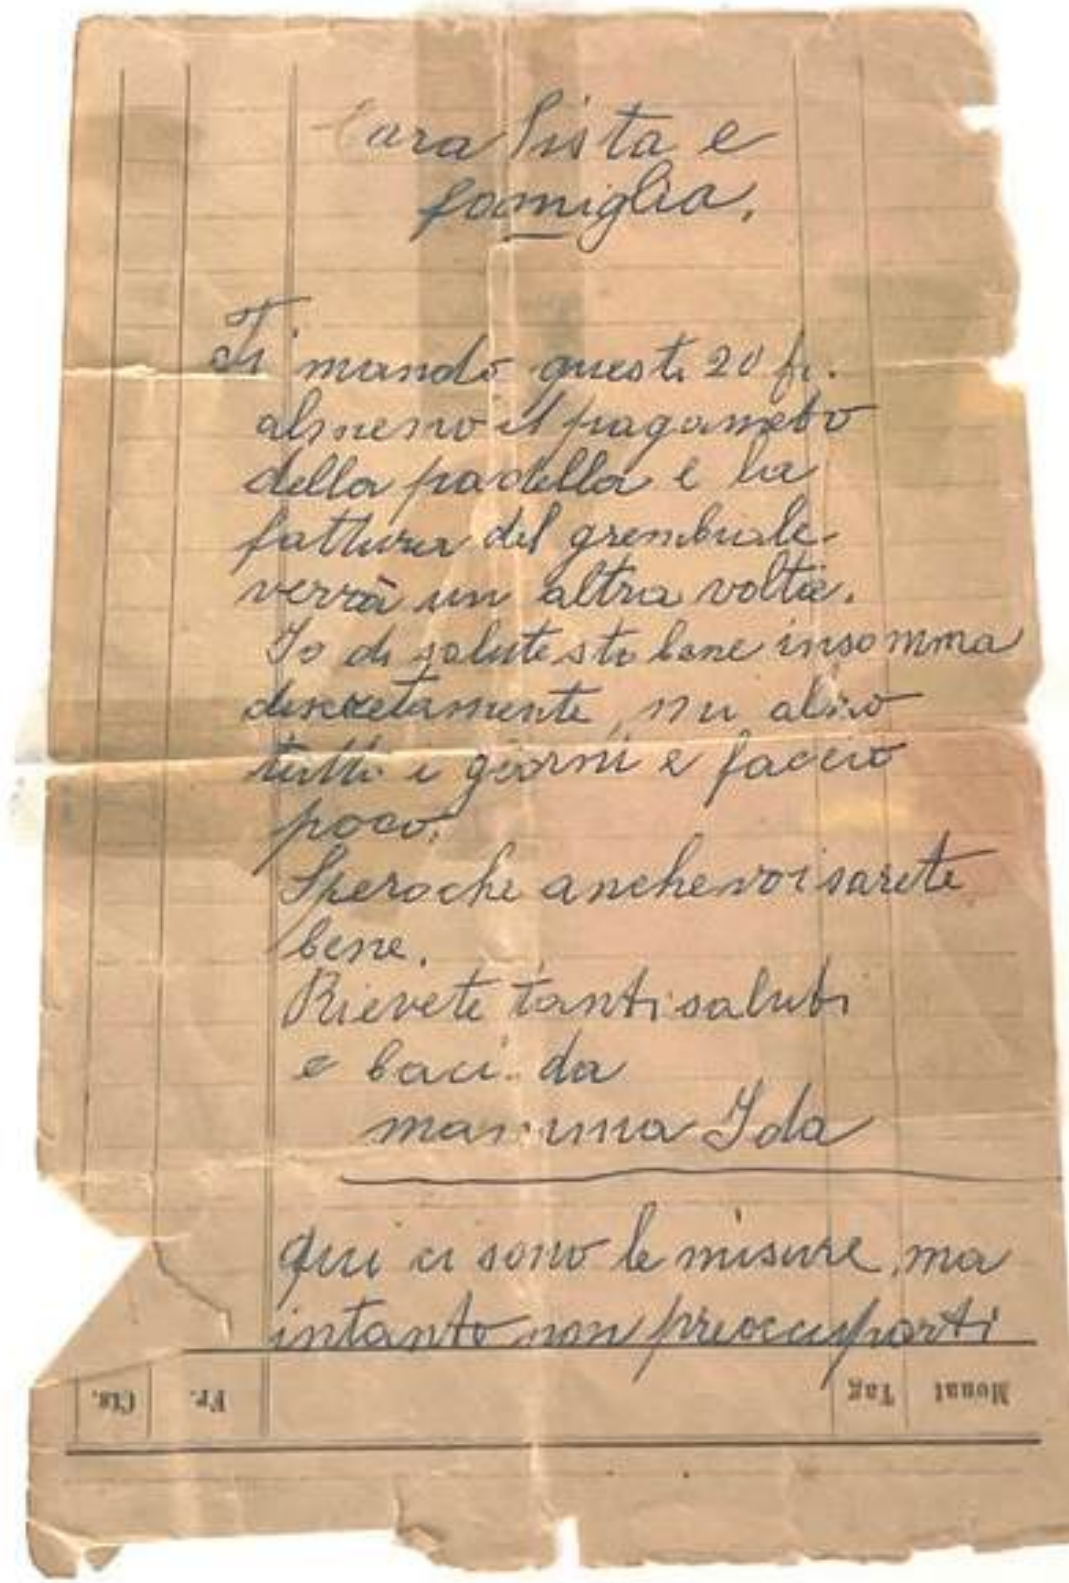 Cara Pista e
famiglia.
Ti mando questi 20 fr.
almeno il pagameto
della padella e la
fattura del grembiale
verrà un altra volta.
Io di salute sto bene insomma
discretamente, mi alzo
tutti i giorni e faccio
poco.
Spero che anche voi sarete
bene.
Rievete tanti saluti
e baci da
mamma Ida
qui ci sono le misure, ma
intanto non preoccuparti
Monat Tag Fr. Cts.